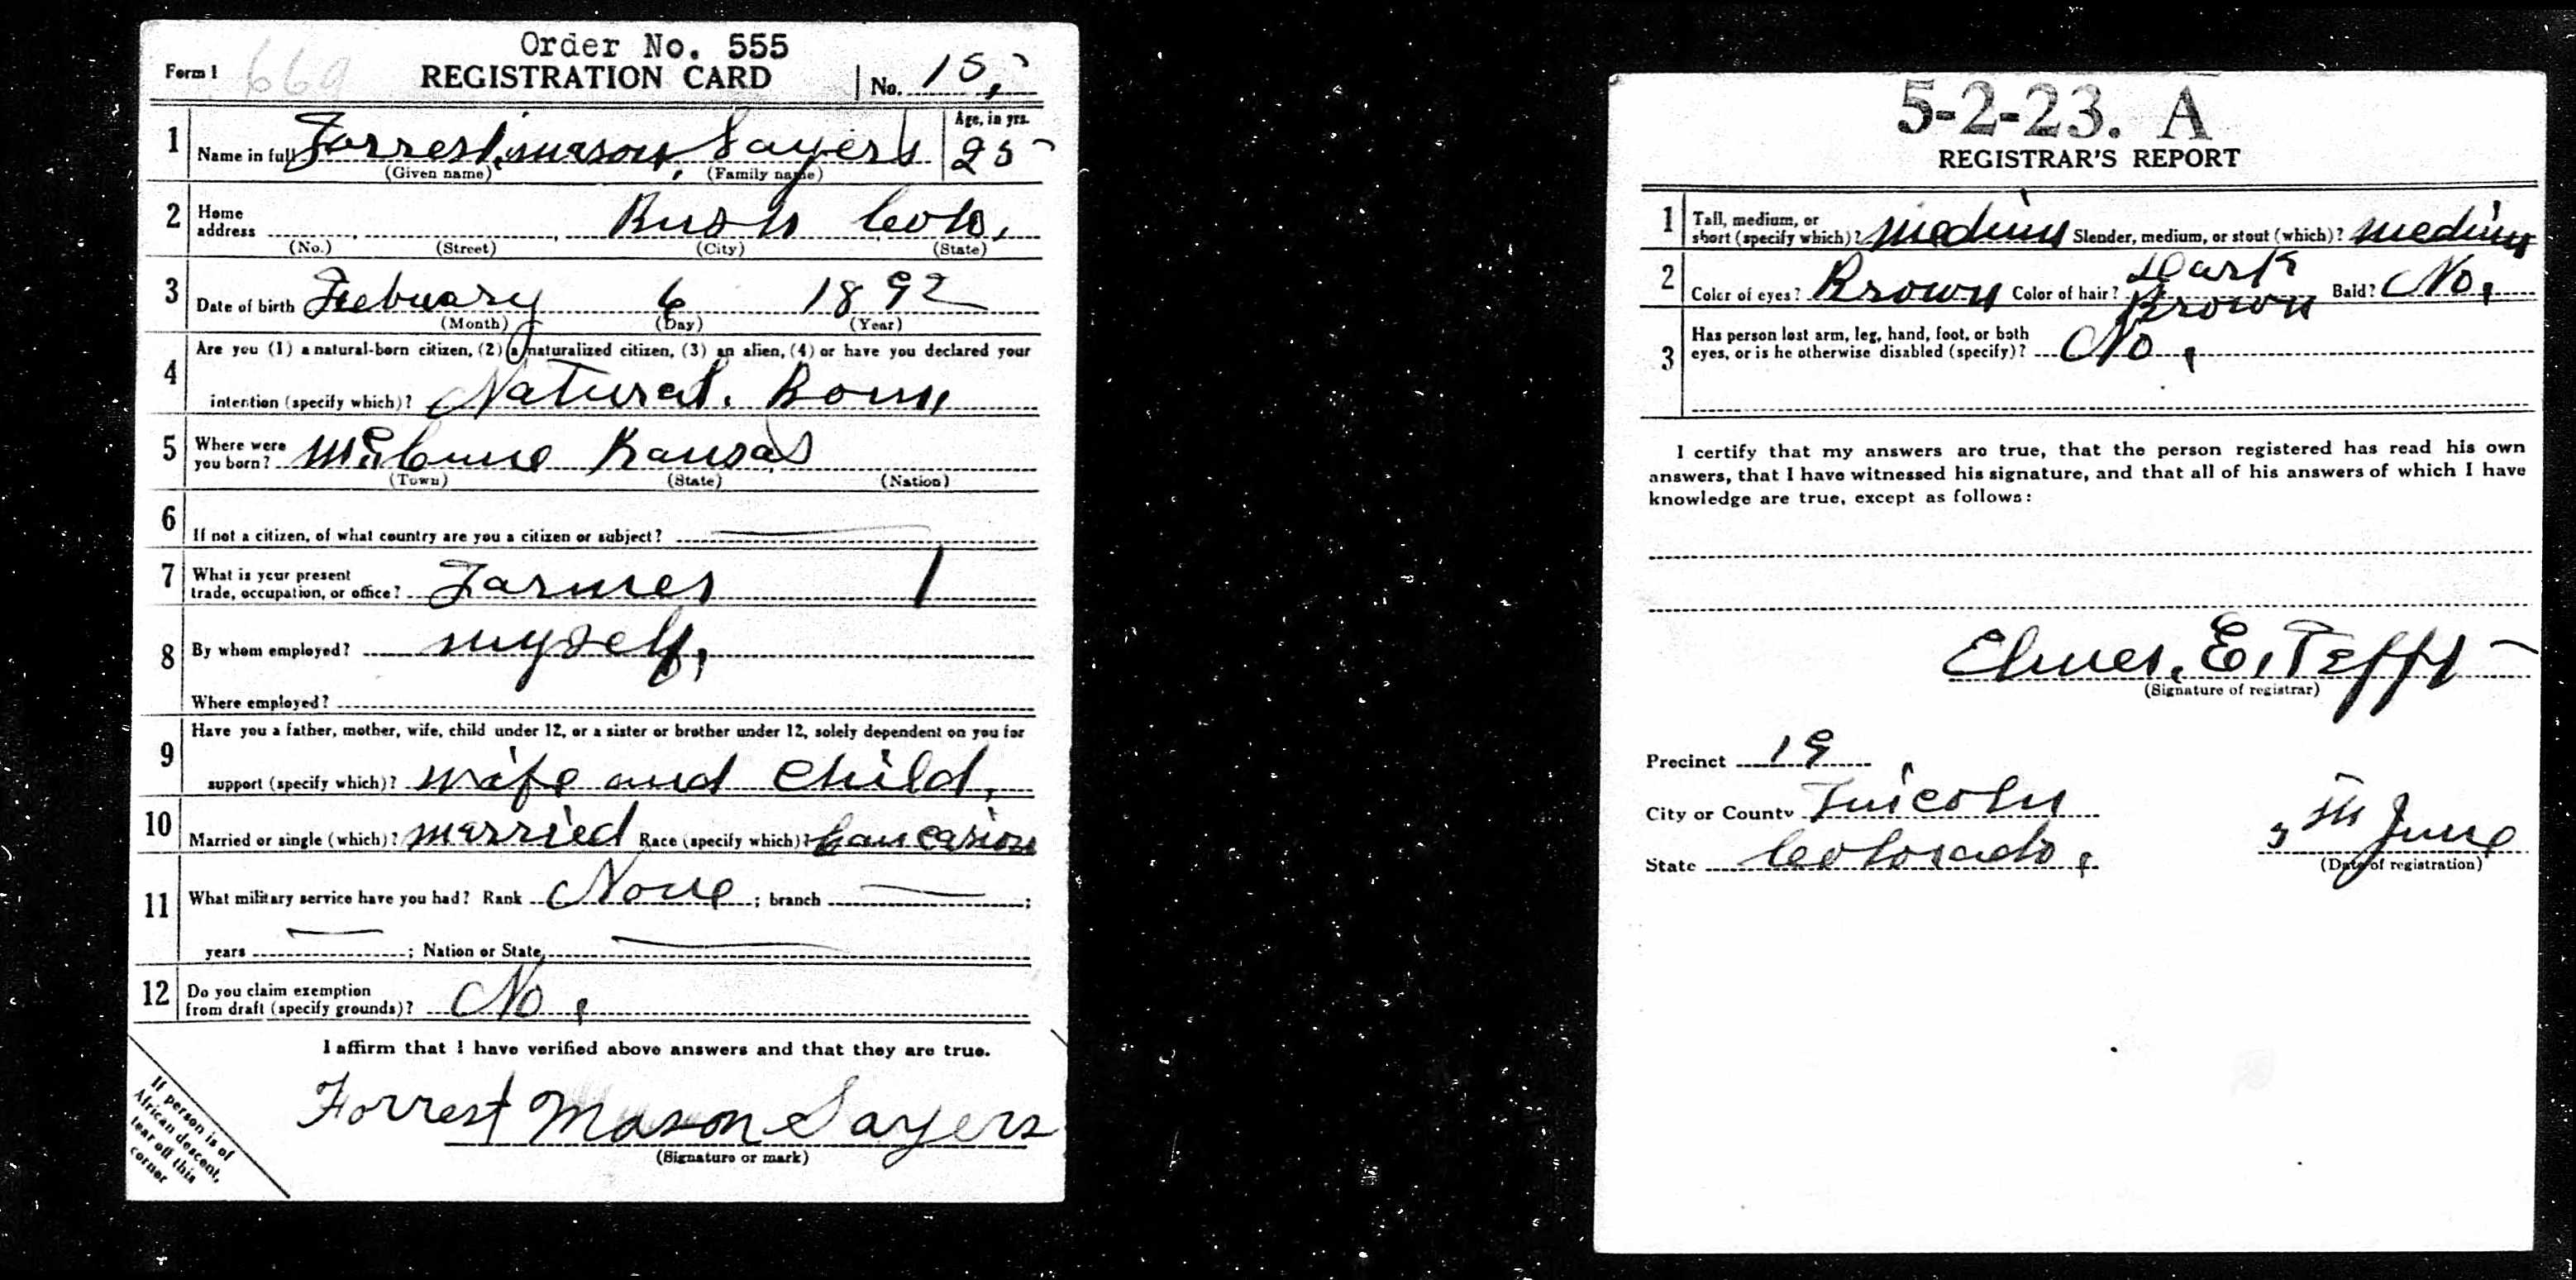 Order No. 555
Form 1 669 REGISTRATION CARD No. 15,
1 Name in full Forrest, mason, Sayers Age, in yrs. 25
(Given name) (Family name)
2 Home address Rush Colo,
(No.) (Street) (City) (State)
3 Date of birth Febuary 6 1892
(Month) (Day) (Year)
4 Are you (1) a natural-born citizen, (2) a naturalized citizen, (3) an alien, (4) or have you declared your
intention (specify which)? Natural. Born
5 Where were you born? McCune Kansas
(Town) (State) (Nation)
6 If not a citizen, of what country are you a citizen or subject?
7 What is your present
trade, occupation, or office? Farmer 1
8 By whom employed? myself,
Where employed?
9 Have you a father, mother, wife, child under 12, or a sister or brother under 12, solely dependent on you for
support (specify which)? wife and child,
10 Married or single (which)? married Race (specify which)? Caucasion
11 What military service have you had? Rank None ; branch ;
years ; Nation or State
12 Do you claim exemption
from draft (specify grounds)? No,
I affirm that I have verified above answers and that they are true.
Forrest Mason Sayers
(Signature or mark)
If person is of
African descent,
tear off this
corner
5-2-23. A
REGISTRAR'S REPORT
1 Tall, medium, or
short (specify which)? medium Slender, medium, or stout (which)? medium
2 Color of eyes? Brown Color of hair? Dark Brown Bald? No,
3 Has person lost arm, leg, hand, foot, or both
eyes, or is he otherwise disabled (specify)? No,
I certify that my answers are true, that the person registered has read his own
answers, that I have witnessed his signature, and that all of his answers of which I have
knowledge are true, except as follows:
Elmer, E, Tefft
(Signature of registrar)
Precinct 19
City or County Lincoln
State Colorado,
5th June
(Date of registration)